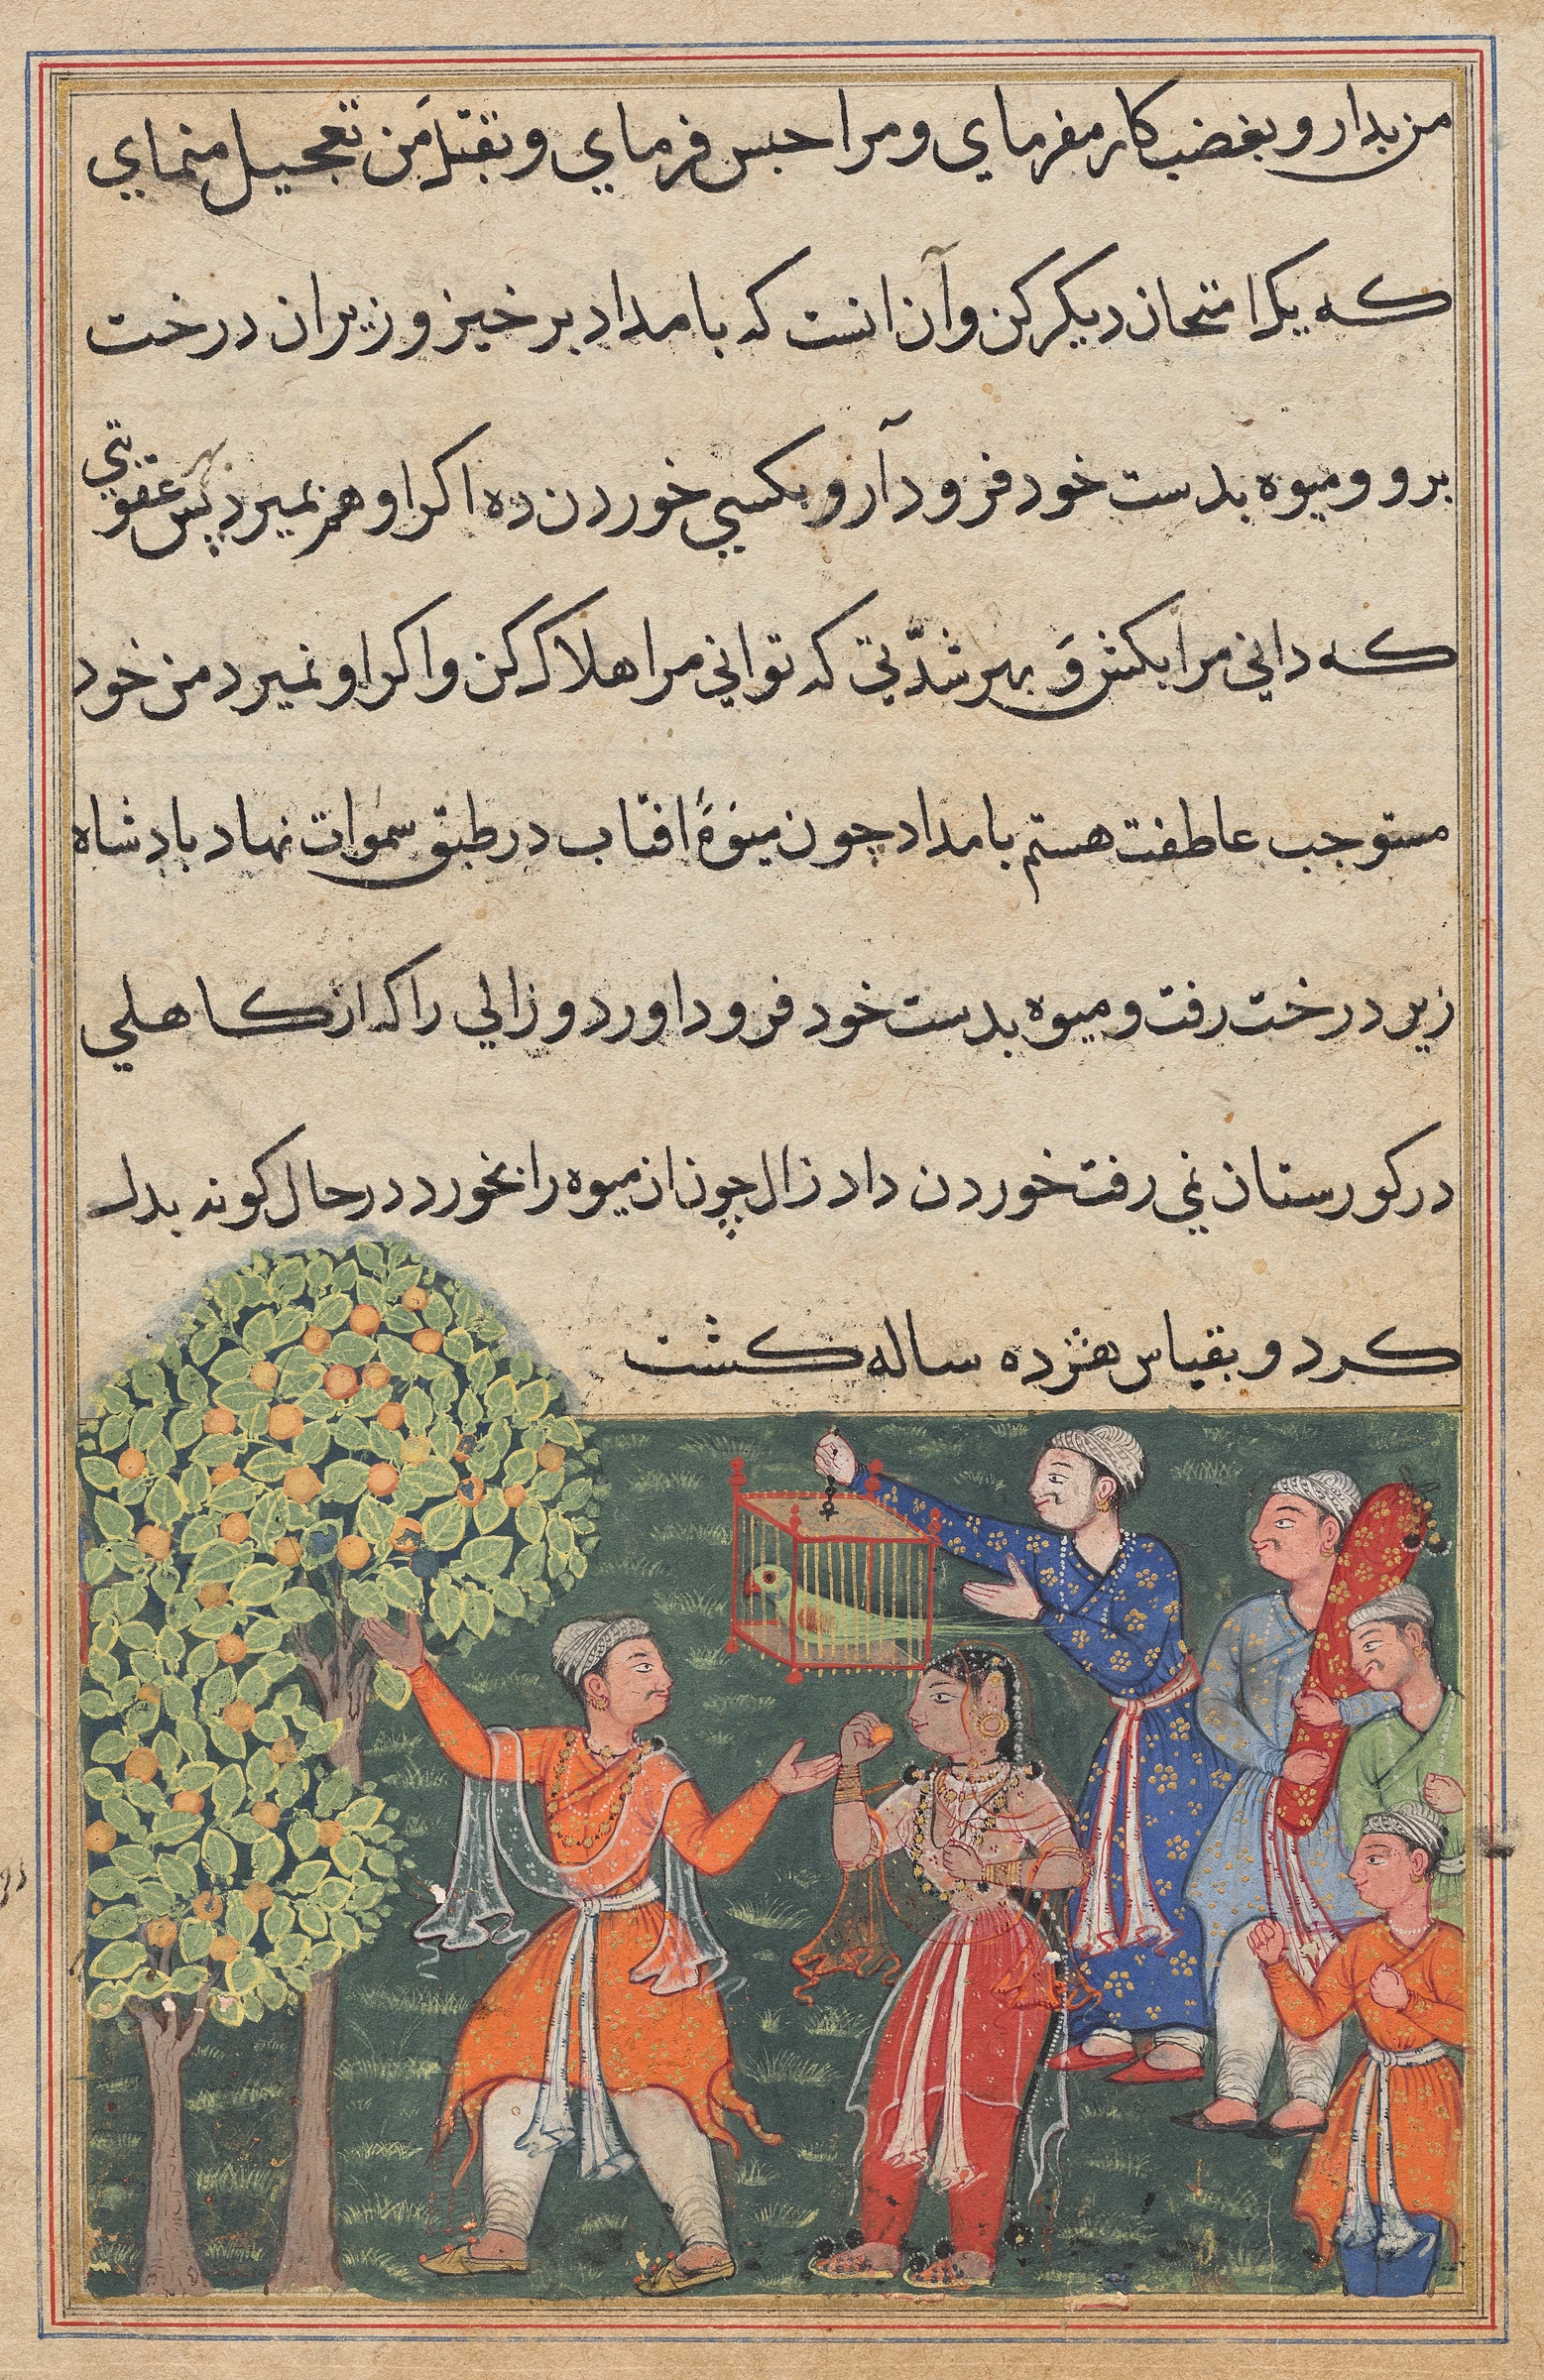 من بدار و بغضب کار مفرمای و مرا حبس فرمای و بقتل من تعجیل منمای
که یک امتحان دیکر کن و آن انست که بامداد بر خیز و زیر ان درخت
برو و میوه بدست خود فرود آر و بکسی خوردن ده اکر او هم بمیرد پس بهر عقوبتی
که دانی مرا بکش و بهر شدّتی که توانی مرا هلاک کن و اکر او نمیرد من خود
مستوجب عاطفت هستم بامداد چون میوۀ افتاب در طبق سموات نهاد بادشاه
زیر درخت رفت و میوه بدست خود فرود اورد و زالی را که از کاهلی
در کورستان نمی رفت خوردن داد زال چون ان میوه را بخورد در حال کونه بدل
کرد و بقیاس هژده ساله کشت